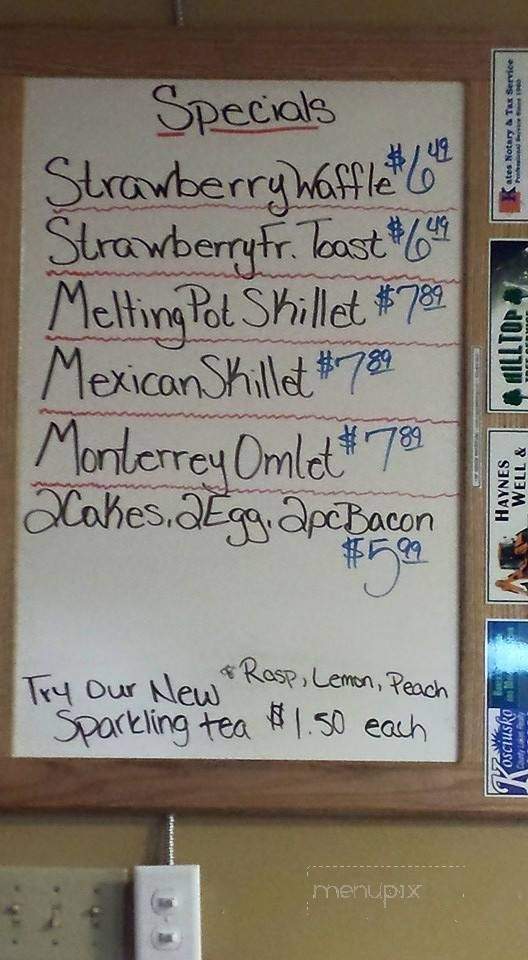 Specials
Strawberry Waffle $6 49
Strawberry Fr. Toast $6 49
Melting Pot Skillet $7 89
Mexican Skillet $7 89
Monterrey Omlet $7 89
2Cakes. 2Egg. 2pc Bacon
$5 99
Rasp, Lemon, Peach
Try Our New
Sparkling tea $1.50 each
Kates Notary & Tax Service
Professional Service Since 1980
HILLTOP
HAYNES
WELL &
Kosciusko
menupix